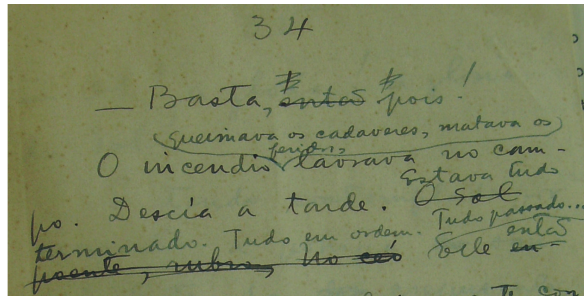 34
— Basta, então pois!
(queimava os cadaveres, matava os
feridos,)
O incendio lavrava no cam-
Estava tudo
po. Descia a tarde. O sol
terminado. Tudo em ordem. Tudo passado...
poente, rubro, no céo Elle en-
então